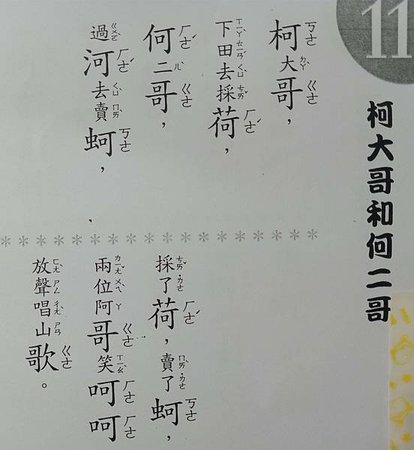 11
柯大哥和何二哥
柯大哥，
下田去採荷，
何二哥，
過河去賣蚵，
採了荷，賣了蚵，
兩位阿哥笑呵呵
放聲唱山歌。